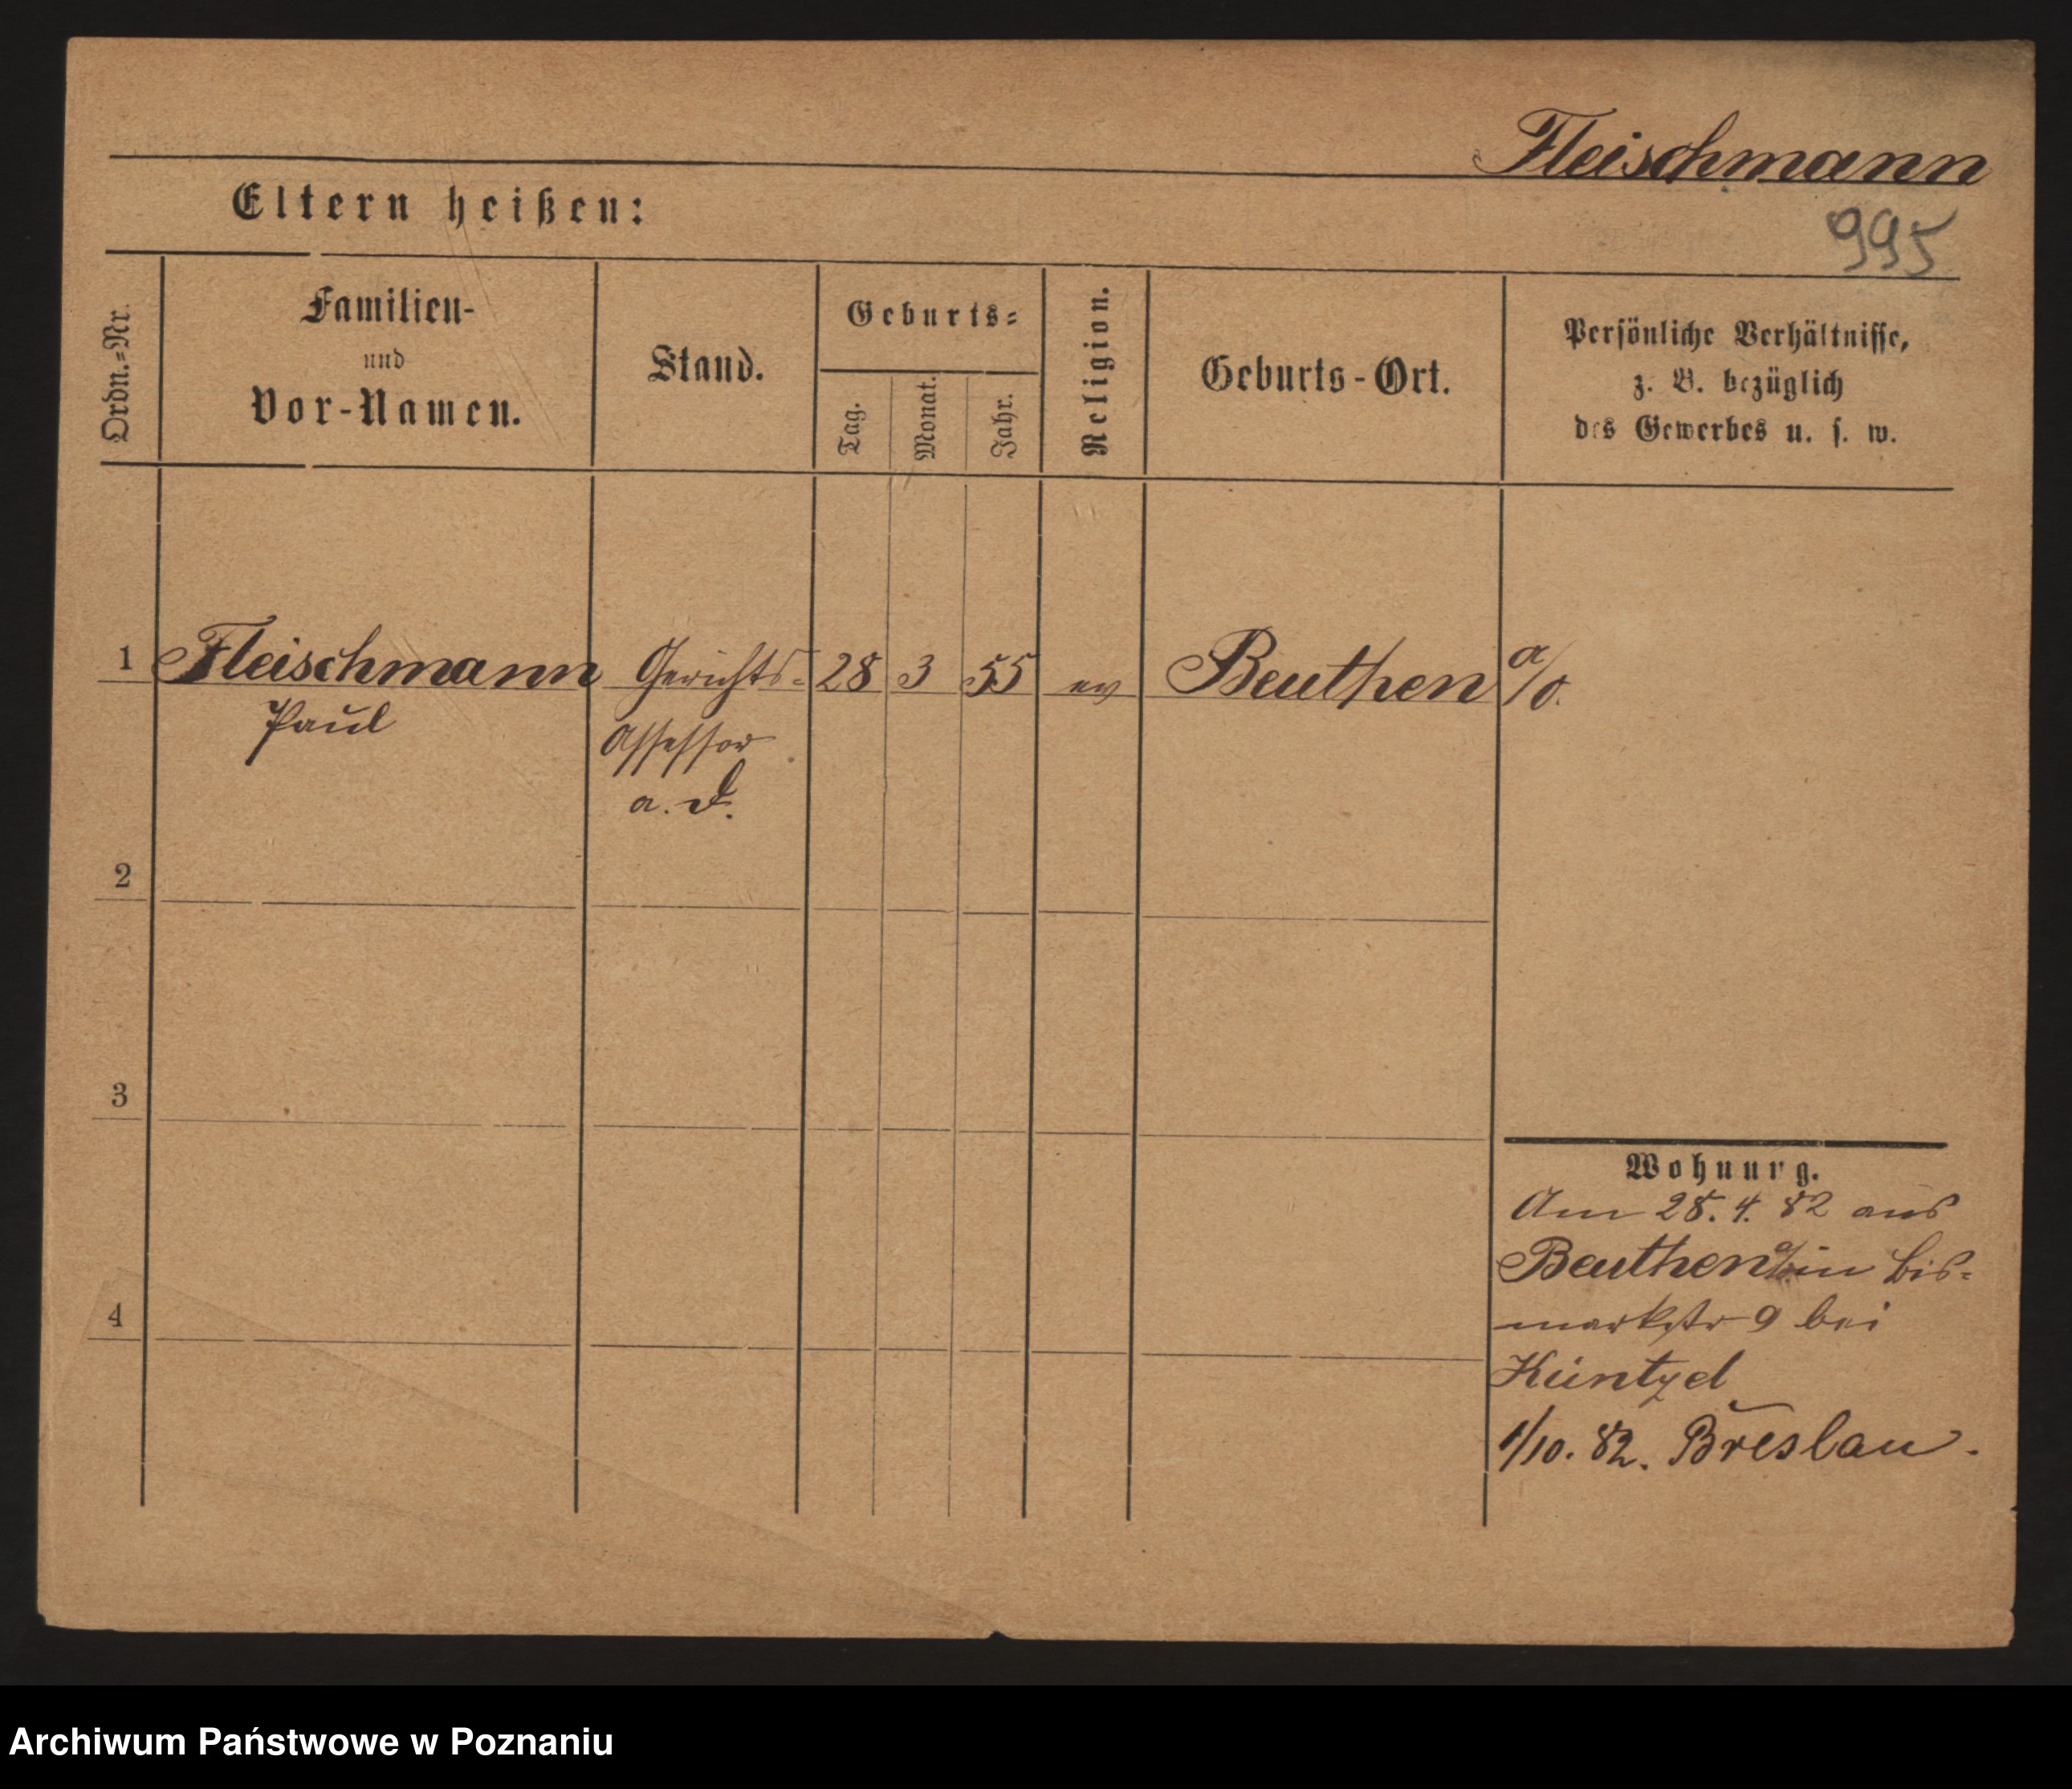 Fleischmann
Eltern heißen:
995
Ordn.=Nr.
Familien-
und
Vor-Namen.
Stand.
Geburts=
Tag.
Monat.
Jahr.
Religion.
Geburts-Ort.
Persönliche Verhältnisse,
z. B. bezüglich
des Gewerbes u. s. w.
1 Fleischmann Gerichts= 28 3 55 ev Beuthen a/O.
Paul Assessor
a. D.
2
3
Wohnung.
Am 28. 4. 82 aus
Beuthen a/O in Bis=
4
markstr 9 bei
Küntzel
1/10. 82. Breslau.
Archiwum Państwowe w Poznaniu